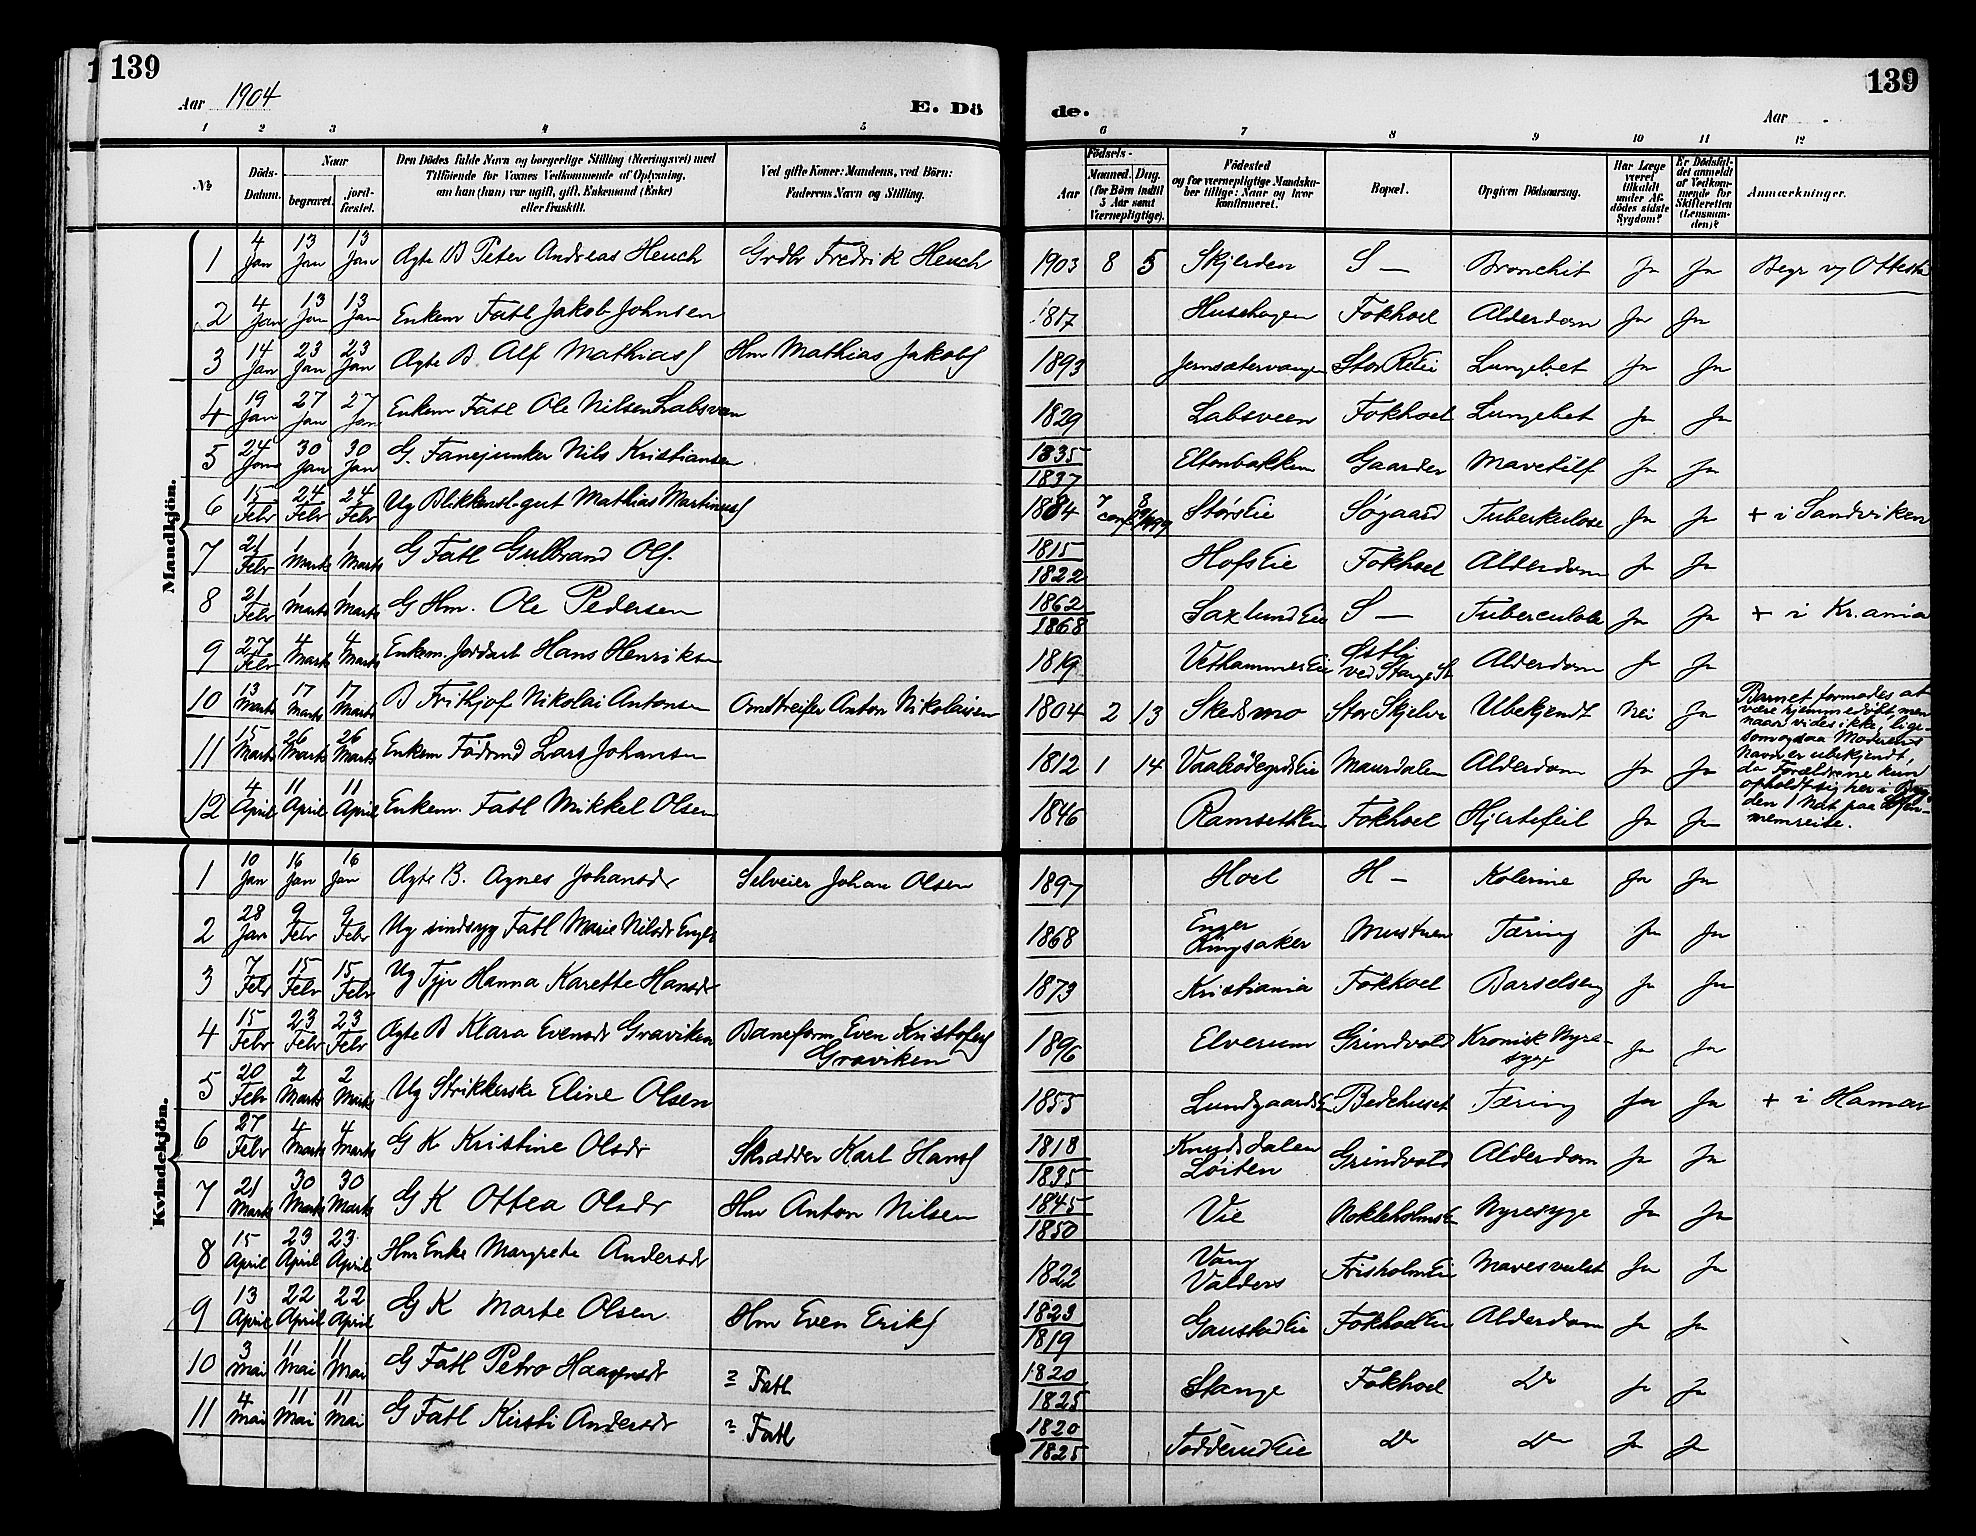 139
Aar 1904
E. Dö
1 2 3 4 5
№
Döds-
Datum.
Naar
begravet.
jord-
fæstet.
Den Dödes fulde Navn og borgerlige Stilling (Næringsvei) med
Tilföiende for Voxnes Vedkommende af Oplysning,
om han (hun) var ugift, gift, Enkemand (Enke)
eller fraskilt.
Ved gifte Koner: Mandens, ved Börn:
Faderens Navn og Stilling.
Mandkjön.
1 4 Jan 13 Jan 13 Jan Ægte B Peter Andreas Heuch Grdbr Fredrik Heuch
2 4 Jan 13 Jan 13 Jan Enkem Fatl Jakob Johnsen
3 14 Jan 23 Jan 23 Jan Ægte B Alf Mathiass Hm Mathias Jakobs
4 19 Jan 27 Jan 27 Jan Enkem Fatl Ole Nilsen Labsveen
5 24 Jan 30 Jan 30 Jan G. Fanejunker Nils Kristiansen
6 15 Febr 24 Febr 24 Febr Ug Blikkensl.gut Mathias Martinuss
7 21 Febr 1 Marts 1 Marts G Fatl Gulbrand Ols.
8 21 Febr 1 Marts 1 Marts G Hm. Ole Pedersen
9 27 Febr 4 Marts 4 Marts Enkem. Jordarb Hans Henriksen
10 13 Marts 17 Marts 17 Marts B Frithjof Nikolai Antonsen Omstreifer Anton Nikolaisen
11 15 Marts 26 Marts 26 Marts Enkem Födermd Lars Johansen
12 4 April 11 April 11 April Enkem. Fatl Mikkel Olsen
Kvindekjön.
1 10 Jan 16 Jan 16 Jan Ægte B. Agnes Johansdr Selveier Johan Olsen
2 28 Jan 9 Febr 9 Febr Ug sindsyg Fatl Marie Nilsdr Enger
3 7 Febr 15 Febr 15 Febr Ug Tjp Hanna Karette Hansdr
4 15 Febr 23 Febr 23 Febr Ægte B Klara Evensdr Graviken Baneform Even Kristofers
Graviken
5 20 Febr 2 Marts 2 Marts Ug Strikkerske Eline Olsen
6 27 Febr 4 Marts 4 Marts G K Kristine Olsdr Skrædder Karl Hans
7 21 Marts 30 Marts 30 Marts G K Ottea Olsdr Hm Anton Nilsen
8 15 April 23 April 23 April Hm Enke Margrete Andersdr
9 13 April 22 April 22 April G K Marte Olsen Hm Even Eriks
10 3 Mai 11 Mai 11 Mai G Fatl Petro Haagensdr ? Fatl
11 4 Mai 11 Mai 11 Mai G Fatl Kirsti Andersdr ? Fatl
139
de.
Aar
6 7 8 9 10 11 12
Födsels-
Aar
Maaned. Dag.
(for Börn indtil
5 Aar samt
Værnepligtige).
Födested
og for værnepligtige Mandska-
ber tillige: Naar og hvor
konfirmeret.
Bopæl.
Opgiven Dödsaarsag.
Har Læge
været
tilkaldt
under Af-
dödes sidste
Sygdom?
Er Dödsfal-
det anmeldt
af Vedkom-
mende for
Skifteretten
(Lensman-
den)?
Anmærkninger.
1903 8 5 Skjerden S — Bronchit Ja Ja Begr v/ Ottestad
1817 Husehagen Fokhoel Alderdom Ja Ja
1893 Jernsætervangen Stor Re Ei Lungebet Ja Ja
1829 Labsveen Fokhoel Lungebet Ja Ja
1835
1837 Eltonbakken Gaarder Mavetilf Ja Ja
1884 7 Størs Eie Søgaard Tuberkulose Ja Ja + i Sandviken
1815
1822 Hofs Eie Fokhoel Alderdom Ja Ja
1862
1868 Saxlund Eie S — Tuberculose Ja Ja + i Kr.ania
1819 Vethammer Eie Østli
ved Stange St Alderdom Ja Ja
1804 2 13 Skedsmo Stor Skjelve Ubekjendt Nei Ja Barnet formodes at
være hjemmedøbt, men
naar vides ikke, lige-
som ogsaa Moderens
Navn er ubekjendt,
da Forældrene kun
opholdt sig her i Byg-
den 1 Nat paa
memreise.
1812 1 14 Maurdalen Alderdom Ja Ja
1846 Ramseth Em Fokhoel Hjertefeil Ja Ja
1897 Hoel H — Kolerine Ja Ja
1868 Enger
Ringsaker Mustuen Tæring Ja Ja
1873 Kristiania Fokhoel Barselseng Ja Ja
1896 Elverum Grindvold Kronisk Nyre-
syge Ja Ja
1855 Lundgaards E Bedehuset Tæring Ja Ja + i Hamar
1818
1835 Knuds dalen
Løiten Grindvold Alderdom Ja Ja
1845
1850 Vie Nokleholms E Nyresyge Ja Ja
1822 Vang
Valders Frisholm Eie Mavesvulst Ja Ja
1823
1819 Gaustad Eie Fokhoel Eie Alderdom Ja Ja
1820
1825 Stange Fokhoel Do Ja Ja
1820
1825 Tødderud Eie Do Do Ja Ja